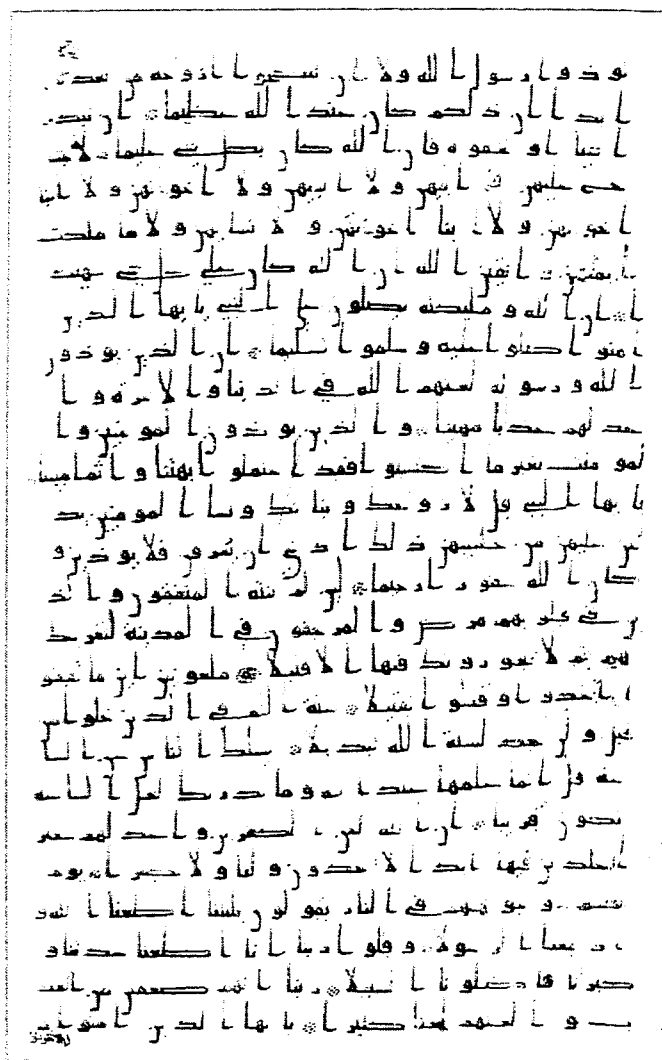 توذوا رسول الله ولا ان تنكحوا ازوجه من بعده
ابدا ان ذلكم كان عند الله عظيما ان تبدو
ا شيا او تخفوه فان الله كان بكل شي عليما لا جنا
ح عليهن في ابايهن ولا ابنايهن ولا اخونهن ولا ابنا
اخونهن ولا ابنا اخوتهن ولا نسايهن ولا ما ملكت
ايمنهن واتقين الله ان الله كان على كل شي شهيد
ا ان الله ومليكته يصلون على النبي يايها الذين
امنوا صلوا عليه وسلموا تسليما ان الذين يوذون
الله ورسوله لعنهم الله في الدنيا والاخرة وا
عد لهم عذابا مهينا والذين يوذون المومنين وا
لمومنت بغير ما اكتسبوا فقد احتملوا بهتنا واثما مبينا
يايها النبي قل لازوجك وبناتك ونسا المومنين يد
نين عليهن من جلبيبهن ذلك ادنى ان يعرفن فلا يوذين و
كان الله غفورا رحيما لين لم ينته المنفقون والذ
ين في قلوبهم مرض والمرجفون في المدينة لنغرينك
بهم ثم لا يجورونك فيها الا قليلا ملعونين اين ما ثقفو
ا اخذوا وقتلوا تقتيلا سنة الله في الذين خلوا من
قبل ولن تجد لسنة الله تبديلا يسلك الناس عن السا
عة قل انما علمها عند الله وما يدريك لعل الساعة
تكون قريبا ان الله لعن الكفرين واعد لهم سعير
ا خلدين فيها ابدا لا يجدون وليا ولا نصيرا يوم
تقلب وجوههم في النار يقولون يليتنا اطعنا الله و
اطعنا الرسولا وقالوا ربنا انا اطعنا سدتنا و
كبرانا فاضلونا السبيلا ربنا اتهم ضعفين من العذ
اب والعنهم لعنا كبيرا يايها الذين امنوا لا